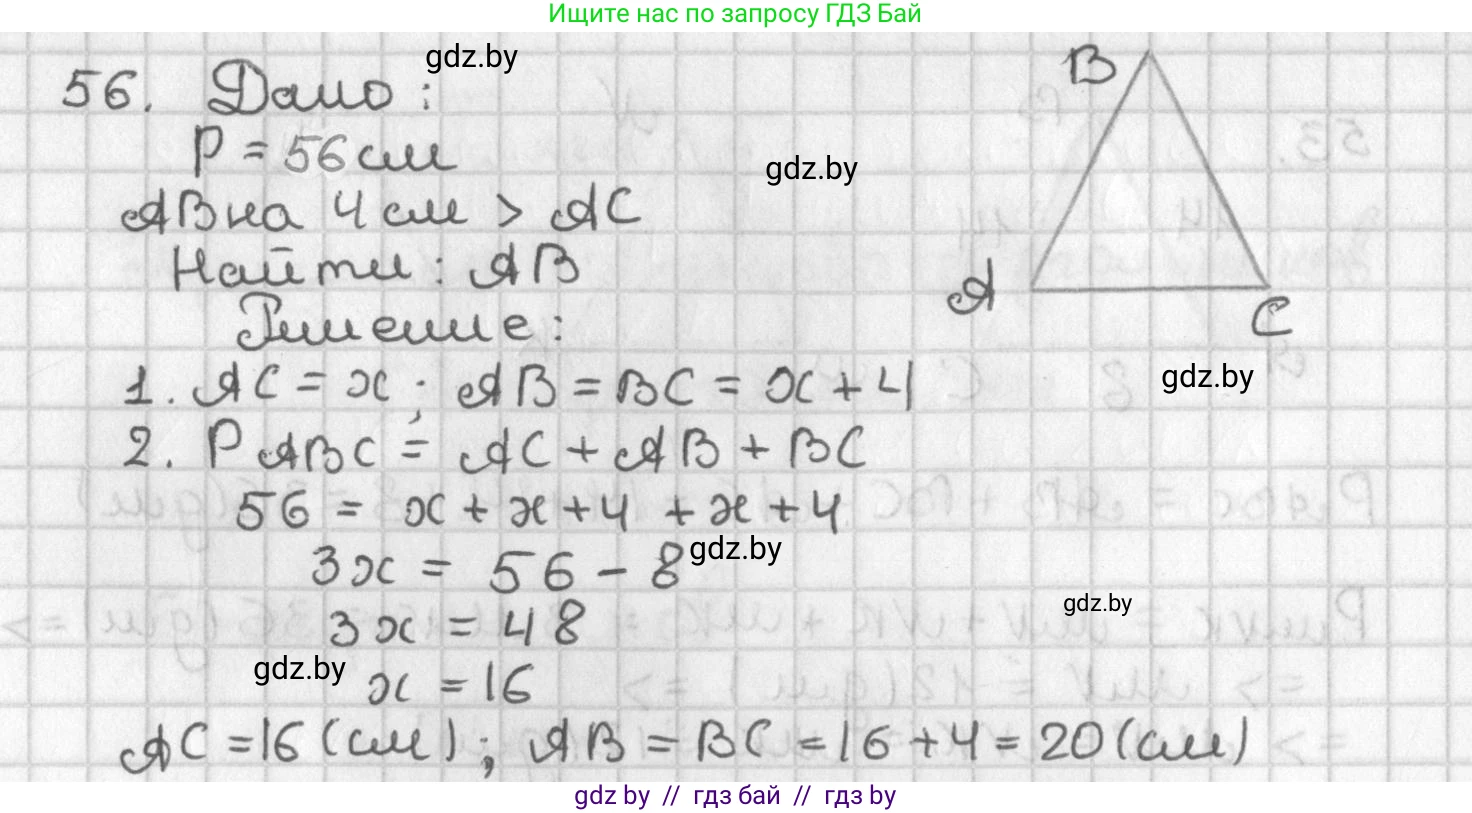 Ищите нас по запросу ГДЗ Бай
gdz.by
56. Дано:
P = 56 см
gdz.by
AB на 4 см > AC
Найти: AB
Решение:
B
A
C
gdz.by
1. AC = x; AB = BC = x + 4
2. P ABC = AC + AB + BC
56 = x + x + 4 + x + 4
3x = 56 - 8
gdz.by
3x = 48
gdz.by
gdz.by
x = 16
AC = 16 (см); AB = BC = 16 + 4 = 20 (см)
gdz by // гдз бай // гдз by